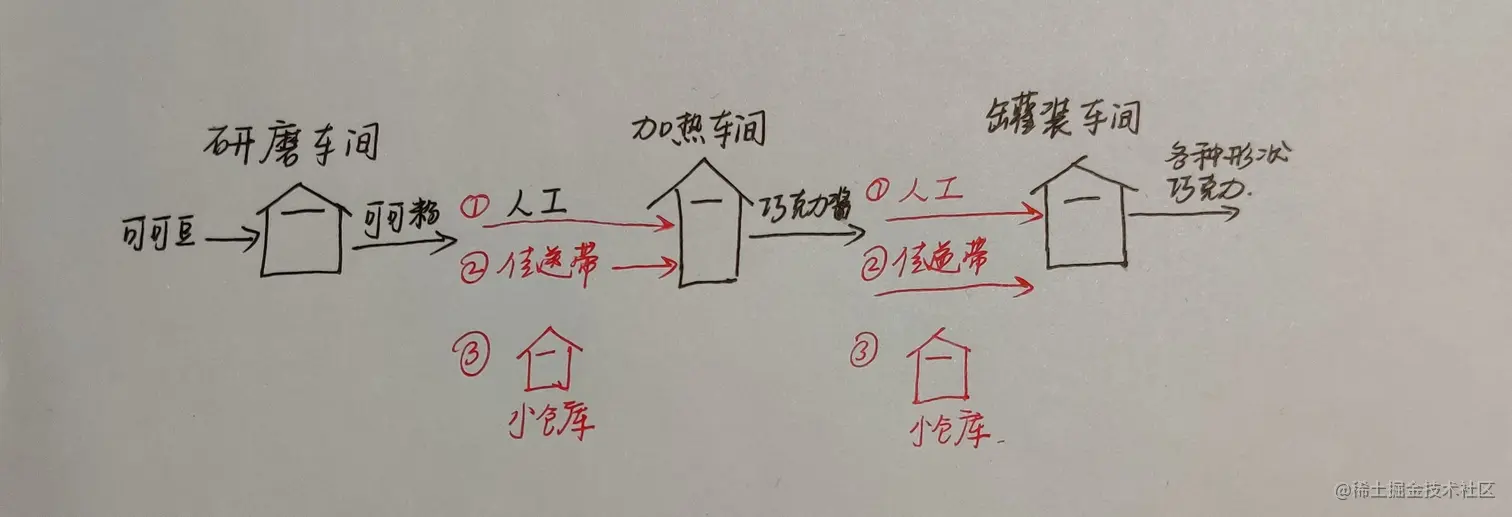 研磨车间
可可豆
可可粉
① 人工
② 传送带
③
小仓库
加热车间
巧克力酱
① 人工
② 传送带
③
小仓库
罐装车间
各种形状
巧克力.
@稀土掘金技术社区